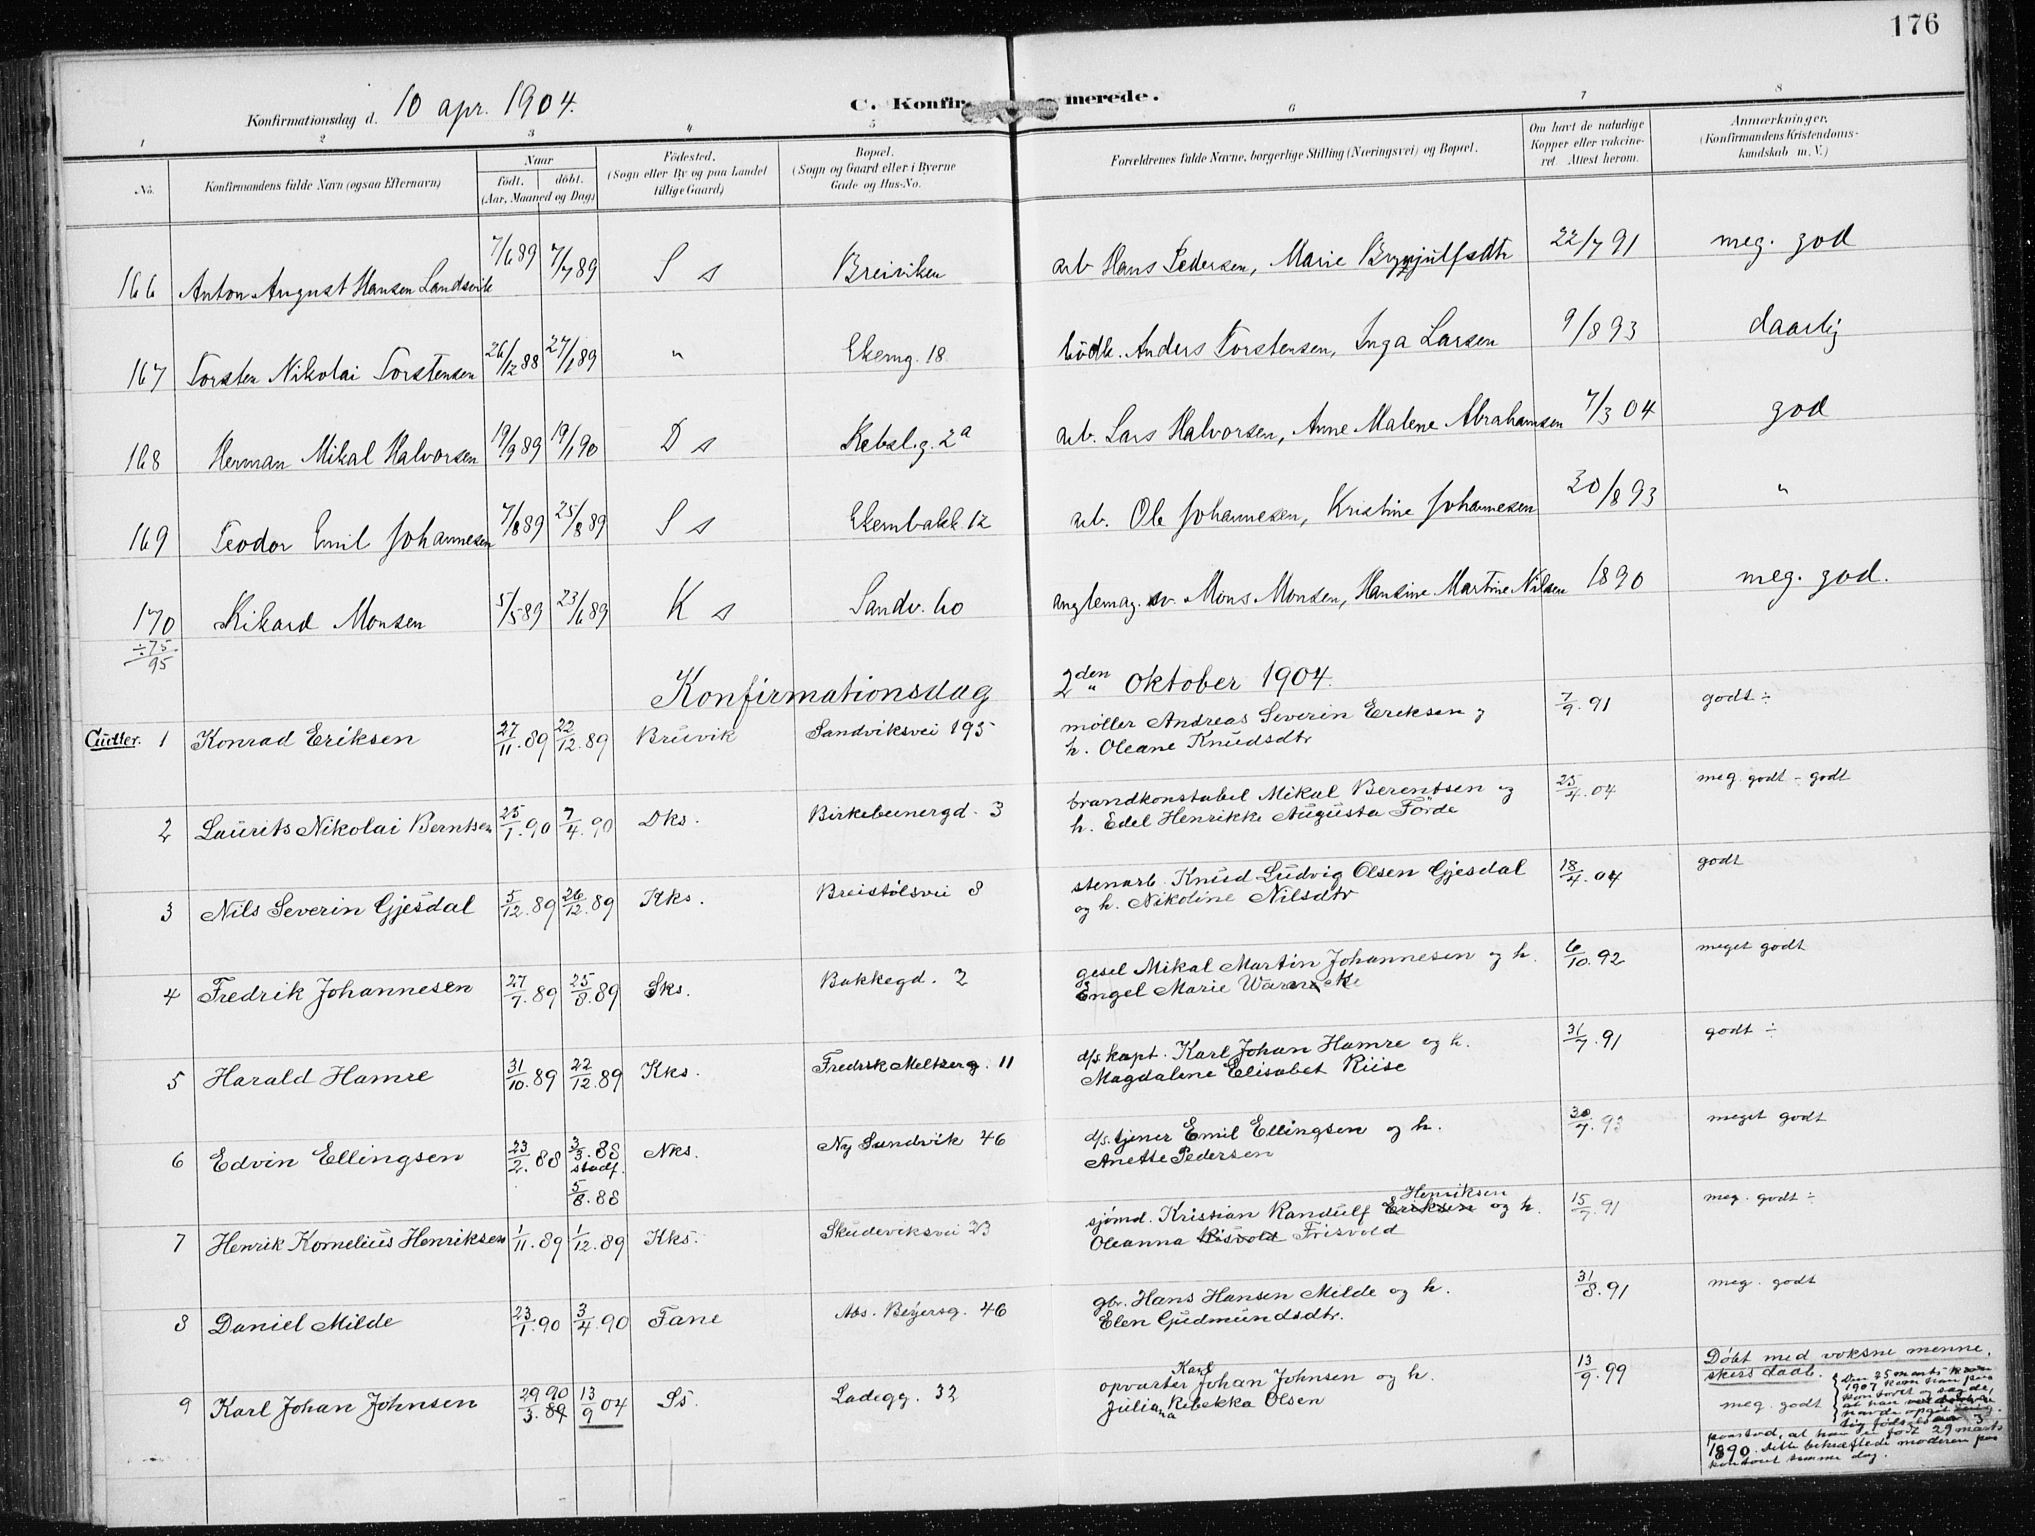 176
Konfirmationsdag d. 10 apr. 1904.
C. Konfirmerede.
1 2 3 4 5 6 7 8
No. Konfirmandens fulde Navn (ogsaa Efternavn) Naar født. døbt. (Aar, Maaned og Dag) Fødested. (Sogn eller By og paa Landet tillige Gaard) Bopæl. (Sogn og Gaard eller i Byerne Gade og Hus-No. Forældrenes fulde Navne, borgerlige Stilling (Næringsvei) og Bopæl. Om havt de naturlige Kopper eller vakcineret. Attest herom. Anmærkninger. (Konfirmandens Kristendomskundskab m. V.)
166 Anton August Hansen Landsvik 7/6 89 7/7 89 S s Breiviken arb Hans Pedersen, Marie Brynjulfsdtr 22/7 91 meg. god
167 Torsten Nikolai Torstensen 26/12 88 27/1 89 " Ekerng. 18 bödk. Anders Torstensen, Inga Larsen 9/8 93 daarlig
168 Herman Mikal Halvorsen 19/9 89 19/1 90 D s Røbslg. 2a arb. Lars Halvorsen, Anne Malene Abrahamsen 7/3 04 god
169 Teodor Emil Johannesen 7/8 89 25/8 89 S s Ekernbakk. 12 arb. Ole Johannesen, Kristine Johannesen 30/8 93 "
170 Rikard Monsen 5/5 89 23/6 89 K s Sandv. 60 Mons Monsen, Hansine Martine Nilsen 1890 meg. god.
÷ 75
95
Konfirmationsdag 2den Oktober 1904.
1 Konrad Eriksen 27/11. 89 22/12. 89 Bruvik Sandviksvei 195 møller Andreas Severin Eriksen og
h. Oleane Knudsdtr 7/9. 91 godt ÷
2 Laurits Nikolai Berntsen 25/1. 90 7/4. 90 Dks. Birkebeinergd. 3 brandkonstabel Mikal Berentsen og
h. Edel Henrikke Augusta Förde 25/4. 04 meg. godt - godt
3 Nils Severin Gjesdal 5/12. 89 26/12. 89 Kks. Breistølsvei 8 stenarb. Knud Ludvig Olsen Gjesdal
og h. Nikoline Nilsdtr 18/4. 04 godt
4 Fredrik Johannesen 27/7. 89 25/8. 89 Sks. Bakkegd. 2 gesel Mikal Martin Johannesen og h.
Engel Marie Warneke 6/10. 92 meget godt
5 Harald Hamre 31/10. 89 22/12. 89 Kks. Fredrik Meltzerg. 11 d/s. kapt. Karl Johan Hamre og h.
Magdalene Elisabet Riise 31/7. 91 godt ÷
6 Edvin Ellingsen 23/2. 88 3/3. 88 stadf. 5/8. 88 Nks. Ny Sandvik 46 d/s. tjener Emil Ellingsen og h.
Anette Pedersen 30/7. 93 meget godt
7 Henrik Kornelius Henriksen 1/11. 89 1/12. 89 Kks. Skudeviksvei 23 sjömd. Kristian Randulf Eriksen Henriksen og h.
Oleanna Risvold Frisvold 15/7. 91 meg. godt ÷
8 Daniel Milde 23/1. 90 3/4. 90 Fane Abs. Beyersg. 46 gbr. Hans Hansen Milde og h.
Elen Gudmundsdtr. 31/8. 91 meg. godt
9 Karl Johan Johnsen 29/3. 89 90 13/9 04 Ss Ladegg. 32 opvarter Karl Johan Johnsen og h.
Juliana Rebekka Olsen 13/9. 99 Döbt med voksne menneskers daab.
meg. godt
Den 25 marts 1907 kom han paa
kontoret og sagde,
at han
havde opgit
fødselsaar
paastod, at han er født 29 marts
1890. Dette bekræftede moderen paa
kontoret samme dag.